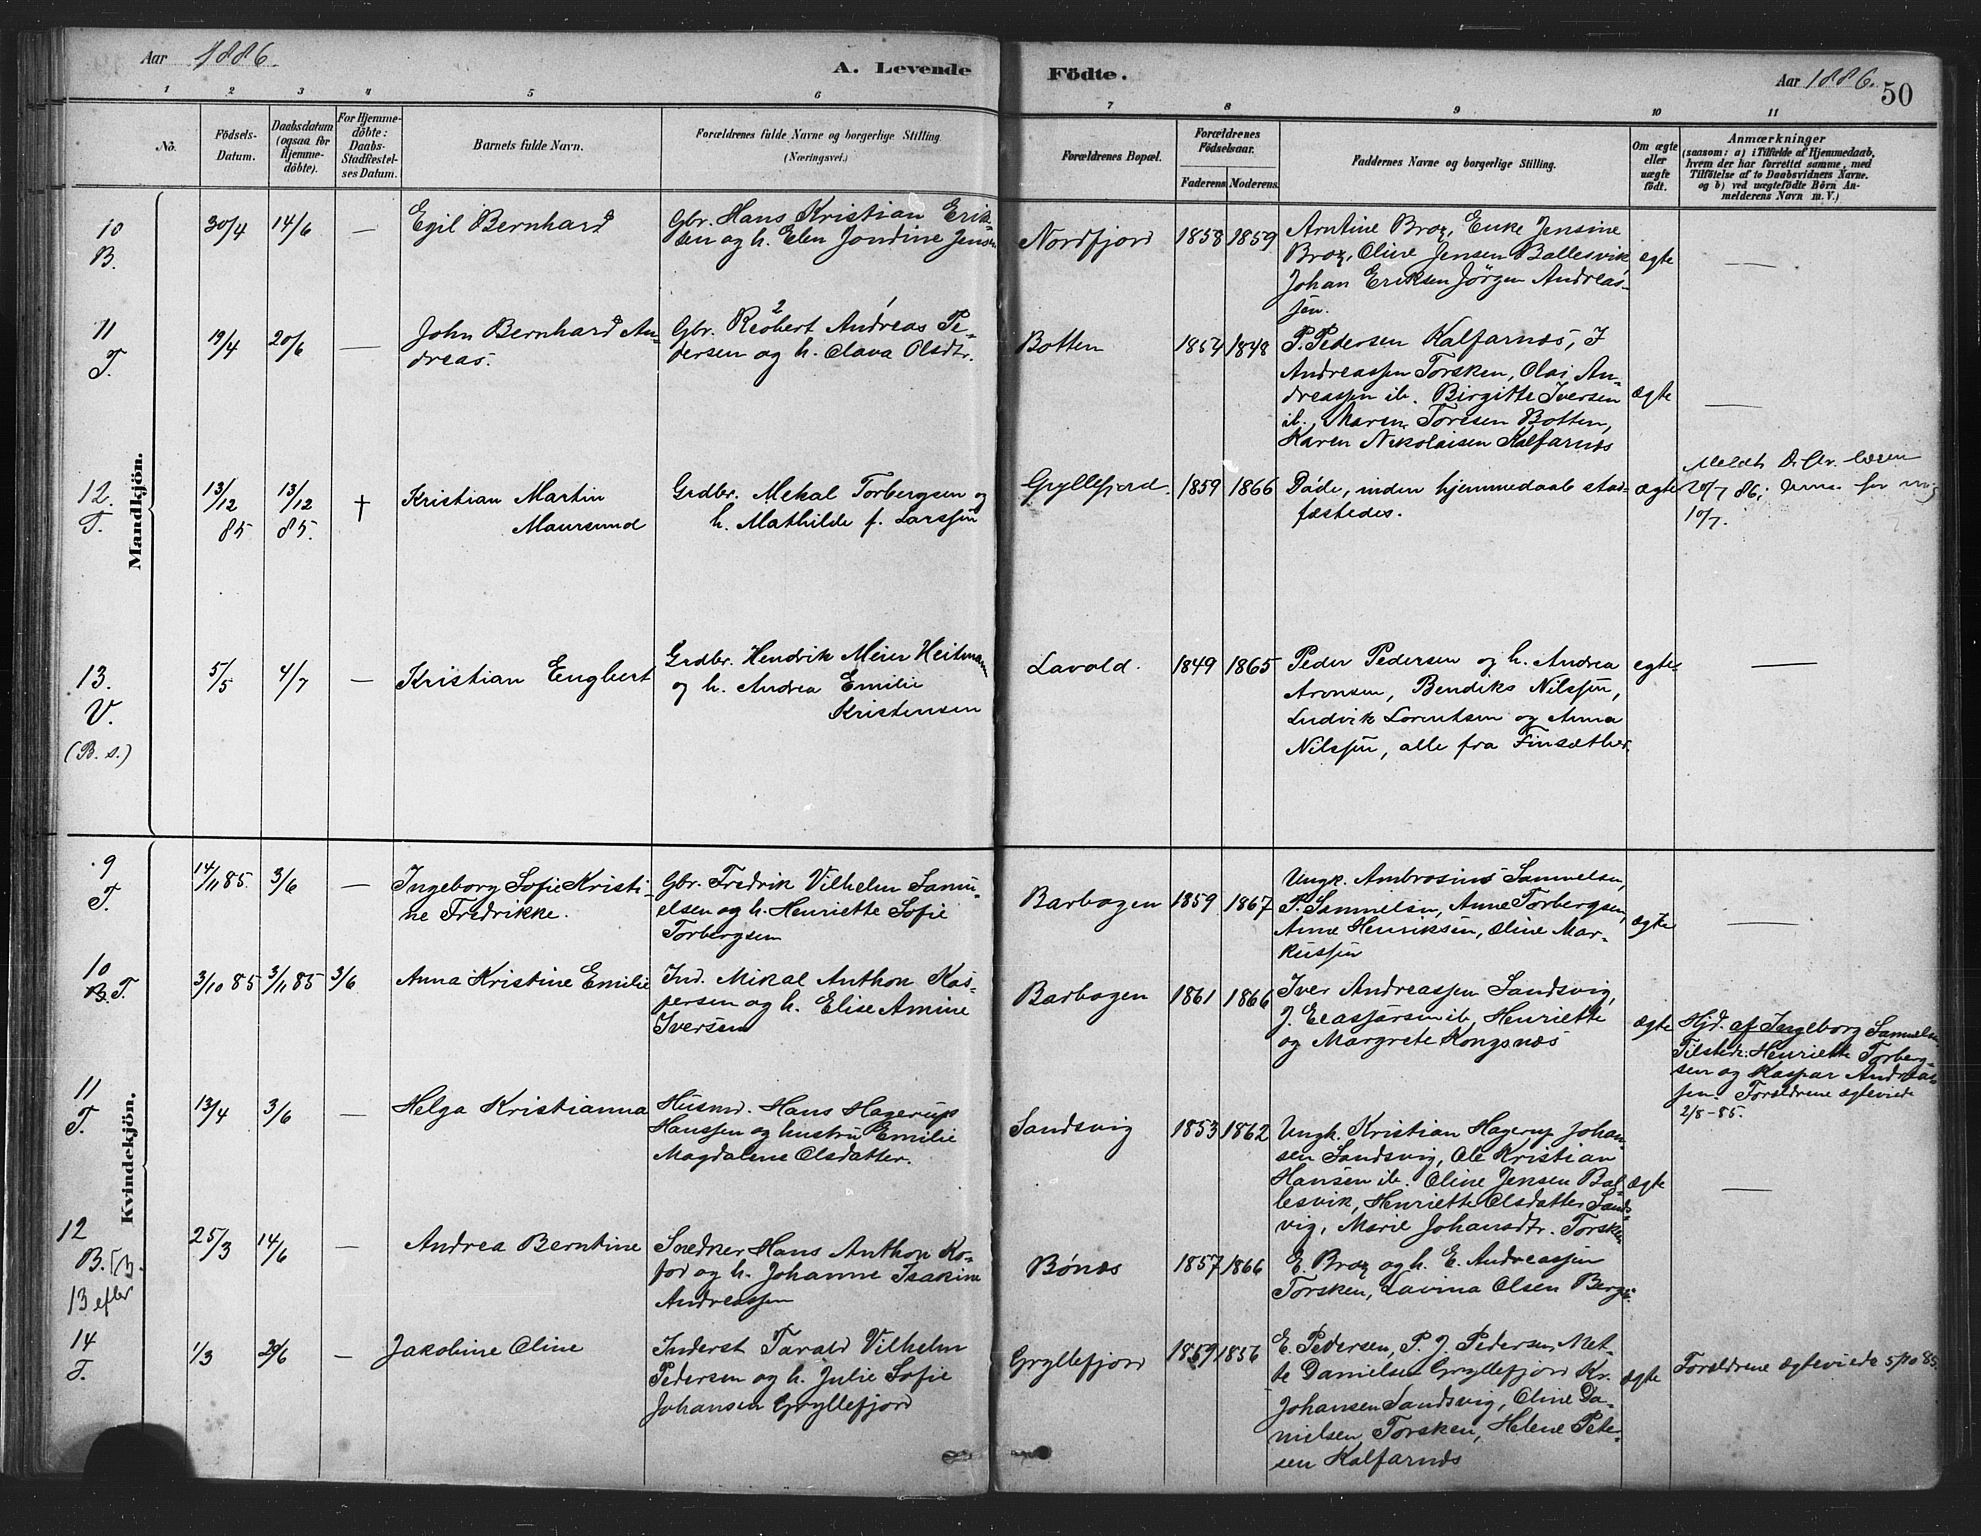 Aar 1886.
A. Levende Födte.
Aar 1886. 50
1 2 3 4 5 6 7 8 9 10 11
No.
Födsels-Datum.
Daabsdatum (ogsaa for Hjemme-döbte).
For Hjemme-döbte: Daabs-Stadfæstel-ses Datum.
Barnets fulde Navn.
Forældrenes fulde Navne og borgerlige Stilling.
(Næringsvei.)
Forældrenes Bopæl.
Forældrenes Födselsaar.
Faderens. Moderens.
Faddernes Navne og borgerlige Stilling.
Om ægte eller uægte födt.
Anmærkninger
(saasom: a) i Tilfælde af Hjemmedaab,
hvem der har forrettet samme, med
Tilföielse af to Daabsvidners Navne.
og b) ved uægtefödte Börn An-
melderens Navn m. V.)
Mandkjön.
10
B.
30/4 14/6 —
Egil Bernhard
Gbr. Hans Kristian Erik-
sen og h. Elen Jondine Jensen
Nordfjord 1858 1859
Arntine Brox, Enke Jensine
Brox, Oline Jensen Ballesvik,
Johan Eriksen Jörgen Andreas-
sen.
egte —
11
T.
19/4 20/6 —
John Bernhard An-
dreas.
Gbr. Andreas Pe-
dersen og h. Olava Olsdtr.
Botten 1854 1848
P. Pedersen Kalfarnæs, I
Andreassen Torsken, Olai An-
dreassen ib. Birgitte Iversen
ib., Maren Toresen Botten,
Karen Nikolaisen Kalfarnæs
ægte —
12.
T.
13/12 85 13/12 85. †
Kristian Martin
Maursund
Grdbr. Mekal Torbergsen og
h. Mathilde f. Larssen
Gryllefjord. 1859 1866
Døde, inden hjemmedaab stad-
fæstedes.
ægte
20/7 86; for mig
10/7.
13.
V.
(B. s.)
5/5 4/7 —
Kristian Engbert
Grdbr. Hendrik Meier Heitmann
og h. Andrea Emilie
Kristensen
Lavold. 1849 1865
Peder Pedersen og h. Andrea
Aronsen, Bendiks Nilssen,
Ludvik Lorentsen og Anna
Nilssen, alle fra Finsæther.
egte —
Kvindekjön.
9
T.
14/11 85. 3/6 —
Ingeborg Sofie Kristi-
ne Fredrikke.
Gbr. Fredrik Vilhelm Samu-
elsen og h. Henriette Sofie
Torbergsen
Barbogen 1859 1867
Ungk. Ambrosius Samuelsen,
P. Samuelsen, Anne Torbergsen,
Anne Henriksen, Oline Mar-
kussen
ægte —
10
B. T.
3/10 85 3/11 85 3/6
Anna Kristine Emilie
Ind. Mikal Anthon Kas-
persen og h. Elise Amine
Iversen
Barbogen 1861 1866
Iver Andreassen Sandsvig,
J. Eliassen ib, Henriette
og Margrete Kongsnæs
ægte
Hjd. af Ingeborg Samuelsen
Tilstede: Henriette Torberg-
sen og Kaspar Andreas-
sen. Forældrene ægteviede
2/8-85.
11
T.
13/4 3/6 —
Helga Kristianna
Husmd. Hans Hagerup
Hanssen og hustru Emilie
Magdalene Olsdatter.
Sandsvig 1853 1862
Ungk. Kristian Hagerup Johan-
sen Sandsvig, Ole Kristian
Hansen ib. Oline Jensen Bal-
lesvik, Henriette Olsdatter Sands-
vig, Marie Johansdtr. Torsken
ægte —
12
B.
13 efter
25/3 14/6 —
Andrea Berntine
Snedker Hans Anthon Ko-
fod og h. Johanne Isakine
Andreassen
Bønæs 1857 1866
E. Brox og h. E. Andreassen
Torsken, Lavina Olsen
14
T.
1/3 20/6 —
Jakobine Oline
Inderst Tarald Vilhelm
Pedersen og h. Julie Sofie
Johansen Gryllefjord
Gryllefjord 1859 1856
E. Pedersen, P. J. Pedersen, Met-
te Danielsen Gryllefjord Kr.
Johansen Sandsvig, Oline Da-
nielsen Torsken, Helene Peter-
sen Kalfarnæs
ægte
Forældrene ægteviede 5/10 85.